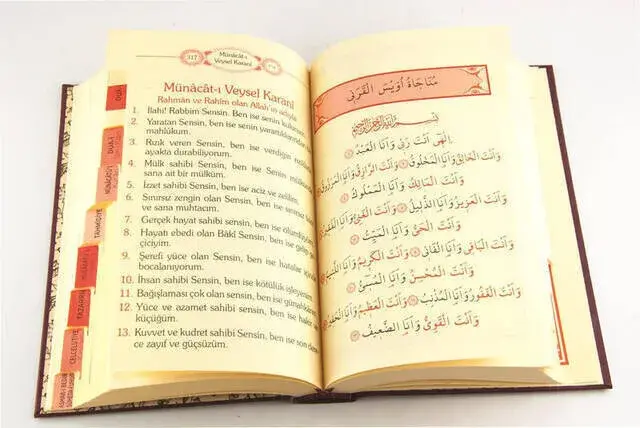 317
Münâcât-ı
Veysel Karanî
Münâcât-ı Veysel Karanî
Rahmân ve Rahîm olan Allah'ın adıyla
1. İlahî! Rabbim Sensin. Ben ise senin kulunum.
2. Yaratan Sensin, ben ise senin yarattıklarından
mahlûkum.
3. Rızık veren Sensin, ben ise verdiğin
ayakta durabiliyorum.
4. Mülk sahibi Sensin, ben ise Senin mülkün
sana ait bir mülküm.
5. İzzet sahibi Sensin, ben ise aciz ve zelilim.
6. Sınırsız zengin olan Sensin, ben ise sınırsız
ve sana muhtacım.
7. Gerçek hayat sahibi Sensin, ben ise
8. Hayatı ebedi olan Bâkî Sensin, ben ise gelip
çiciyim.
9. Şerefi yüce olan Sensin, ben ise hatalar içinde
bocalanıyorum.
10. İhsan sahibi Sensin, ben ise kötülük işleyenim.
11. Bağışlaması çok olan sensin, ben ise günahkârım
12. Yüce ve azamet sahibi Sensin, ben ise hakir ve
küçüğüm.
13. Kuvvet ve kudret sahibi Sensin, ben ise son
ce zayıf ve güçsüzüm.
DUÂ-İ
TAHMİDİYE
TAZARRU
CELCELUTİYE
مُنَاجَاةُ اُوَيْسَ الْقَرَنِى
بِسْمِ اللهِ الرَّحْمٰنِ الرَّحِيمِ
اِلٰهِى اَنْتَ رَبِّى وَاَنَا الْعَبْدُ
وَاَنْتَ الْخَالِقُ وَاَنَا الْمَخْلُوقُ وَاَنْتَ الرَّزَّاقُ وَاَنَا الْمَرْزُوقُ
وَاَنْتَ الْمَالِكُ وَاَنَا الْمَمْلُوكُ
وَاَنْتَ الْعَزِيزُ وَاَنَا الذَّلِيلُ وَاَنْتَ الْغَنِىُّ وَاَنَا
وَاَنْتَ الْحَىُّ وَاَنَا الْمَيِّتُ
وَاَنْتَ الْبَاقِى وَاَنَا الْفَانِى وَاَنْتَ الْكَرِيمُ وَاَنَا اللَّئِيمُ
وَاَنْتَ الْمُحْسِنُ وَاَنَا الْمُسِىءُ
وَاَنْتَ الْغَفُورُ وَاَنَا الْمُذْنِبُ وَاَنْتَ الْعَظِيمُ وَاَنَا الْحَقِيرُ
وَاَنْتَ الْقَوِىُّ وَاَنَا الضَّعِيفُ